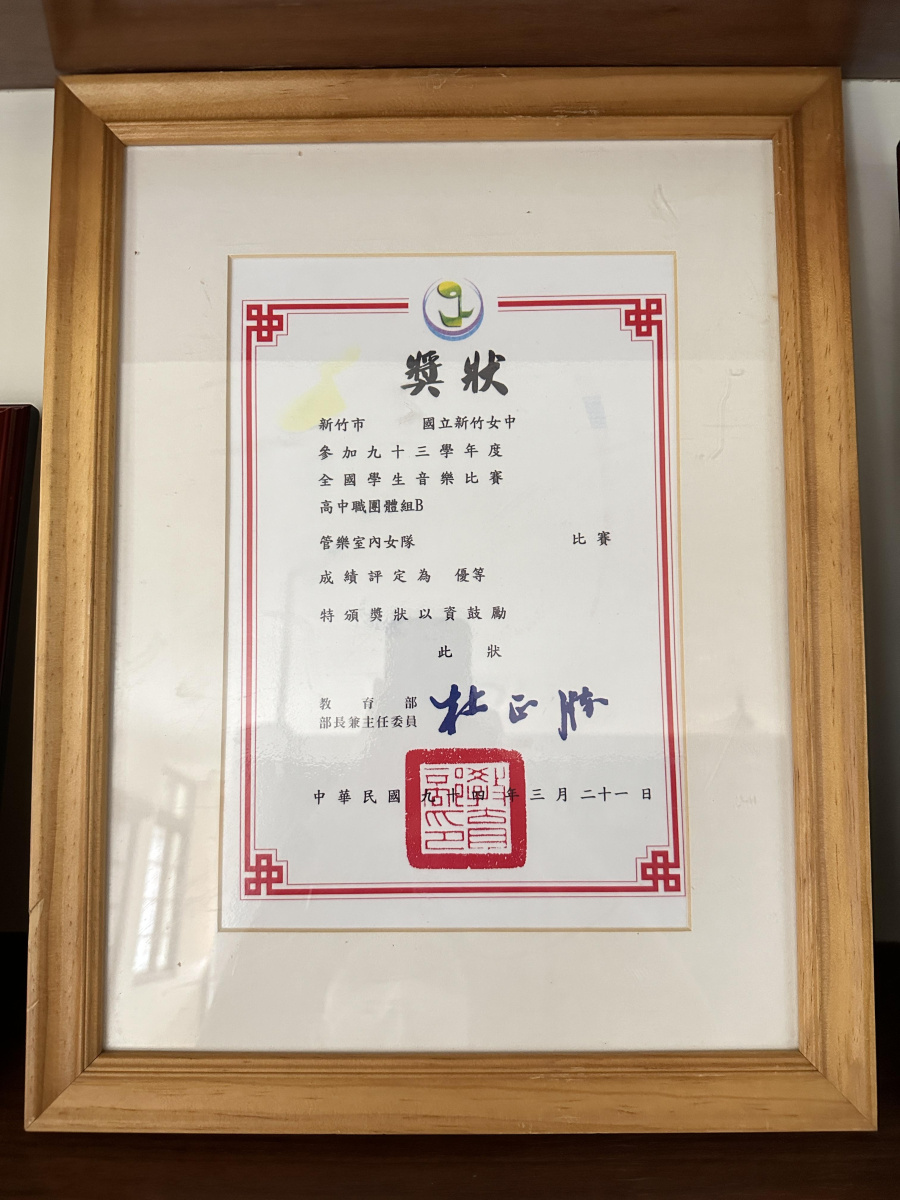 獎狀
新竹市 國立新竹女中
參加九十三學年度
全國學生音樂比賽
高中職團體組B
管樂室內女隊 比賽
成績評定為 優等
特頒獎狀以資鼓勵
此狀
教育部
部長兼主任委員 杜正勝
中華民國九十四年三月二十一日
教育部印